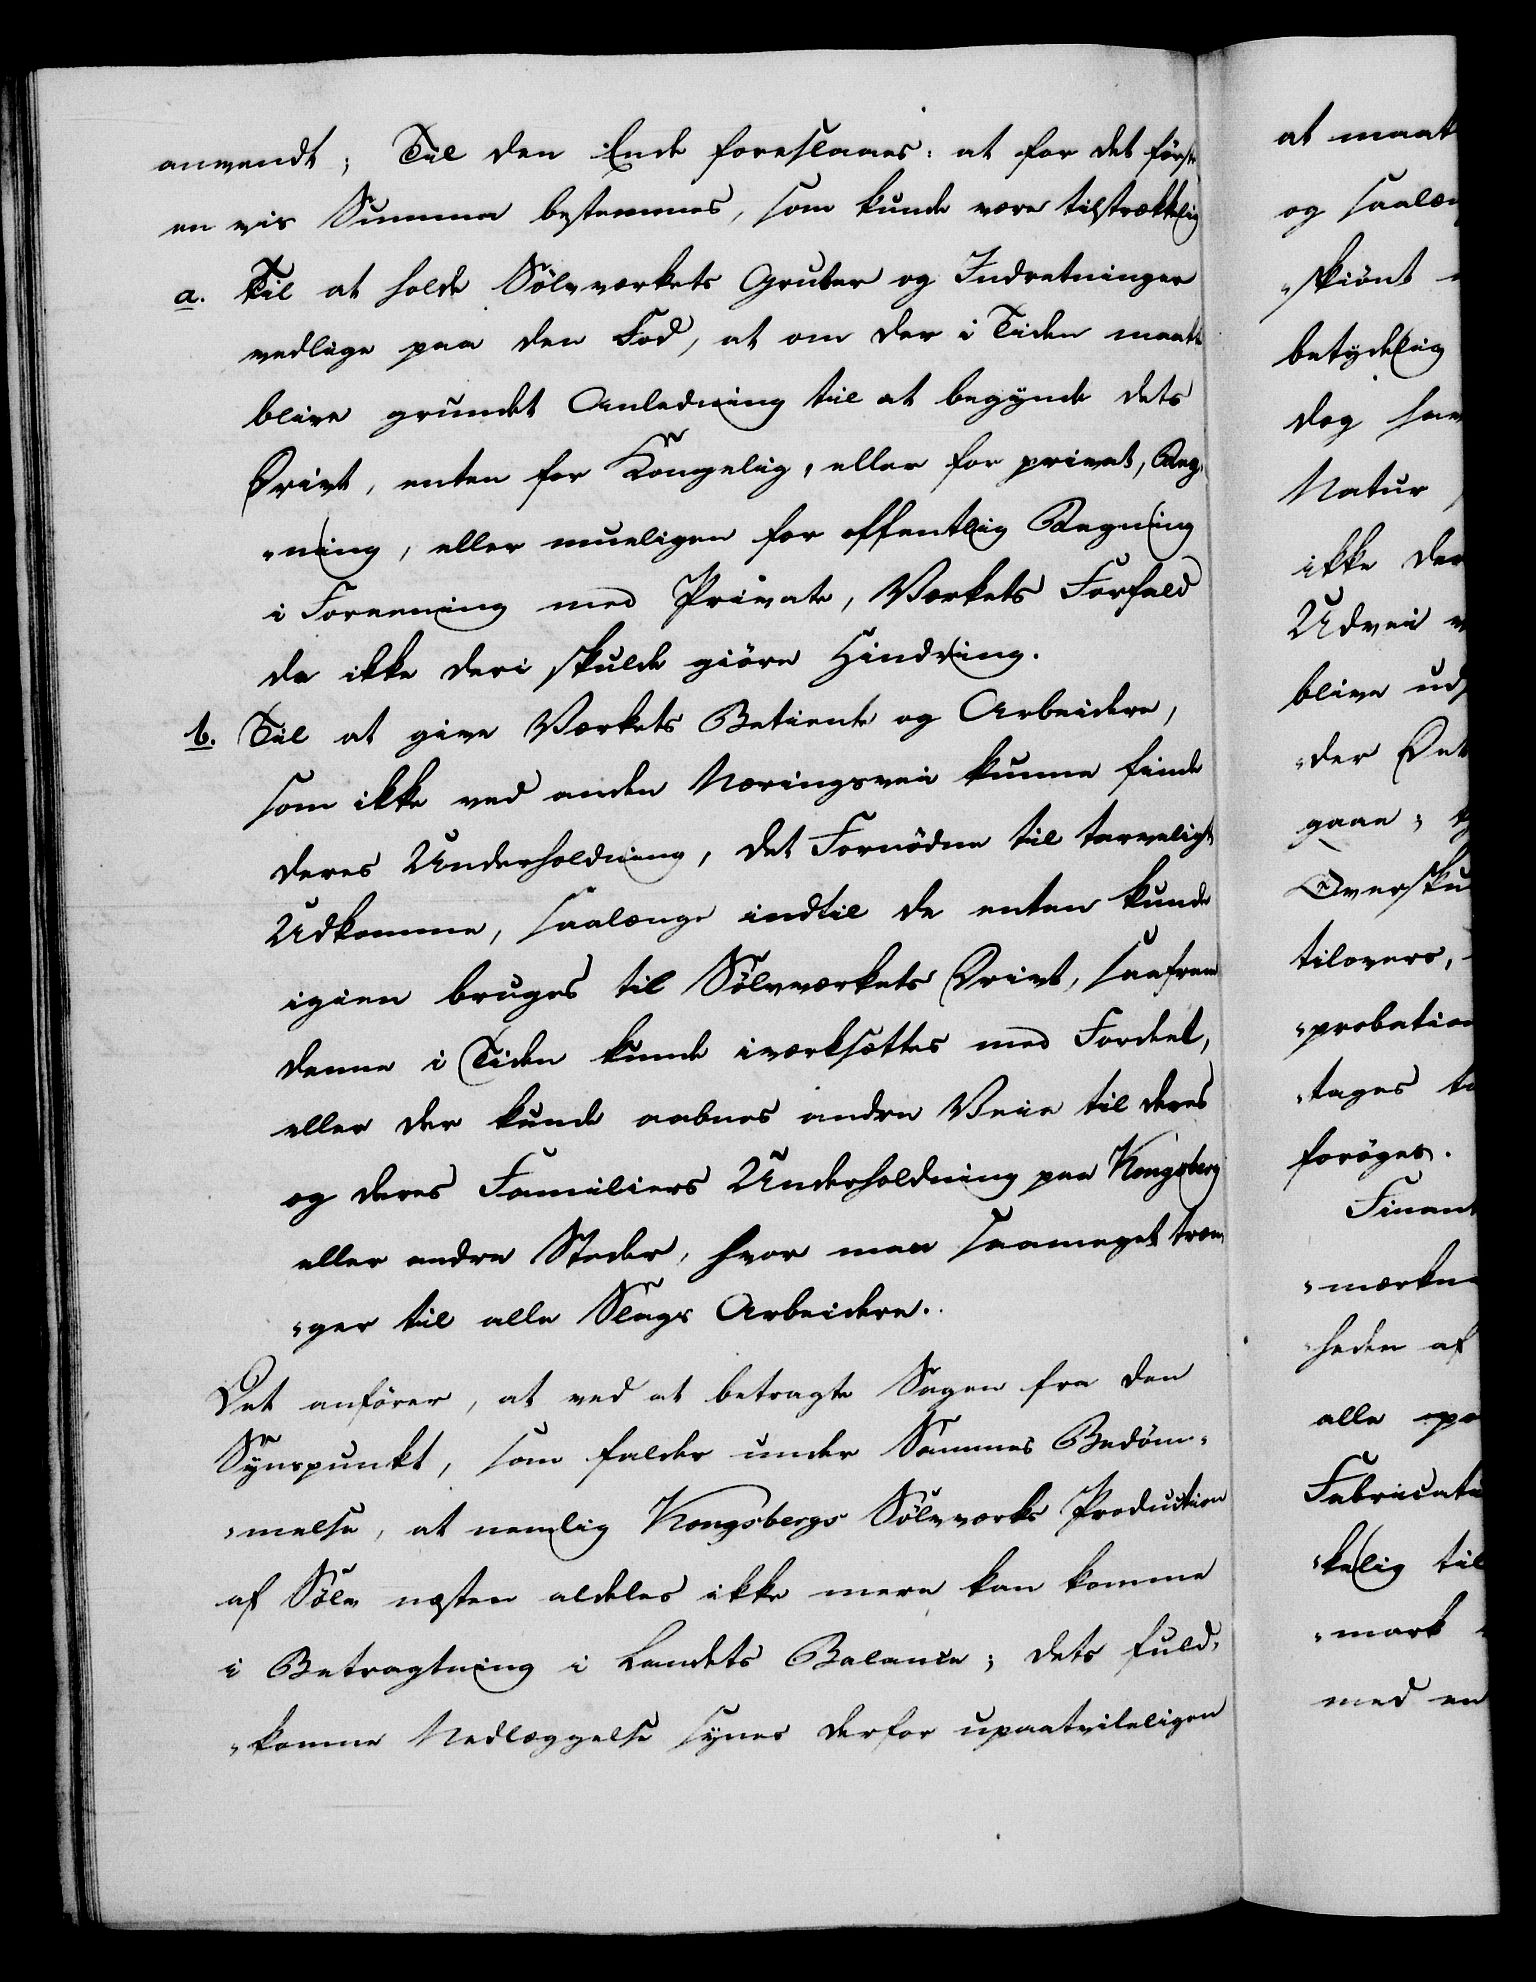 anvendt; Til den Ende foreslaaes: at for det første
en vis Summa bestemmes, som kunde være tilstrækkelig
a. Til at holde Sølvværkets Gruber og Indretninger
vedlige paa den Fod, at om der i Tiden maatte
blive grundet Anledning til at begynde dets
Drivt, enten for Kongelig, eller for privat, Reg-
"ning, eller mueligen for offentlig Regning
i Foreening med Private, Værkets Forfald
da ikke deri skulde giöre Hindring.
b. Til at give Værkets Betiente og Arbeidere,
som ikke ved anden Næringsvei kunne finde
deres Underholdning, det Fornödne til tarveligt
Udkomme, saalænge indtil de enten kunde
igien bruges til Sölvværkets Drivt, saafremt
denne i Tiden kunde iværksættes med Fordeel,
eller der kunde aabnes andre Veie til deres
og deres Familiers Underholdning paa Kongsberg
eller andre Steder, hvor man saameget træn-
"ger til alle Slags Arbeidere.
Det anförer, at ved at betragte Sagen fra den
Synspunkt, som falder under Sammes Bedöm-
"melse, at nemlig Kongsbergs Sölvværks Production
af Sölv næsten aldeles ikke mere kan komme
i Betragtning i Landets Balance; dets fuld-
"komne Nedlæggelse synes derfor upaatvileligen
at maatt
og saalæn
"skiönt
betydelig
dog hav
Natur
ikke der
Udvei
blive ud
"der Det
gaae;
Oversku
tilovers,
"probation
"tages
forøges.
Finant
"mærkn
"heden af
alle
Fabricat
"kelig til
"mark
med en